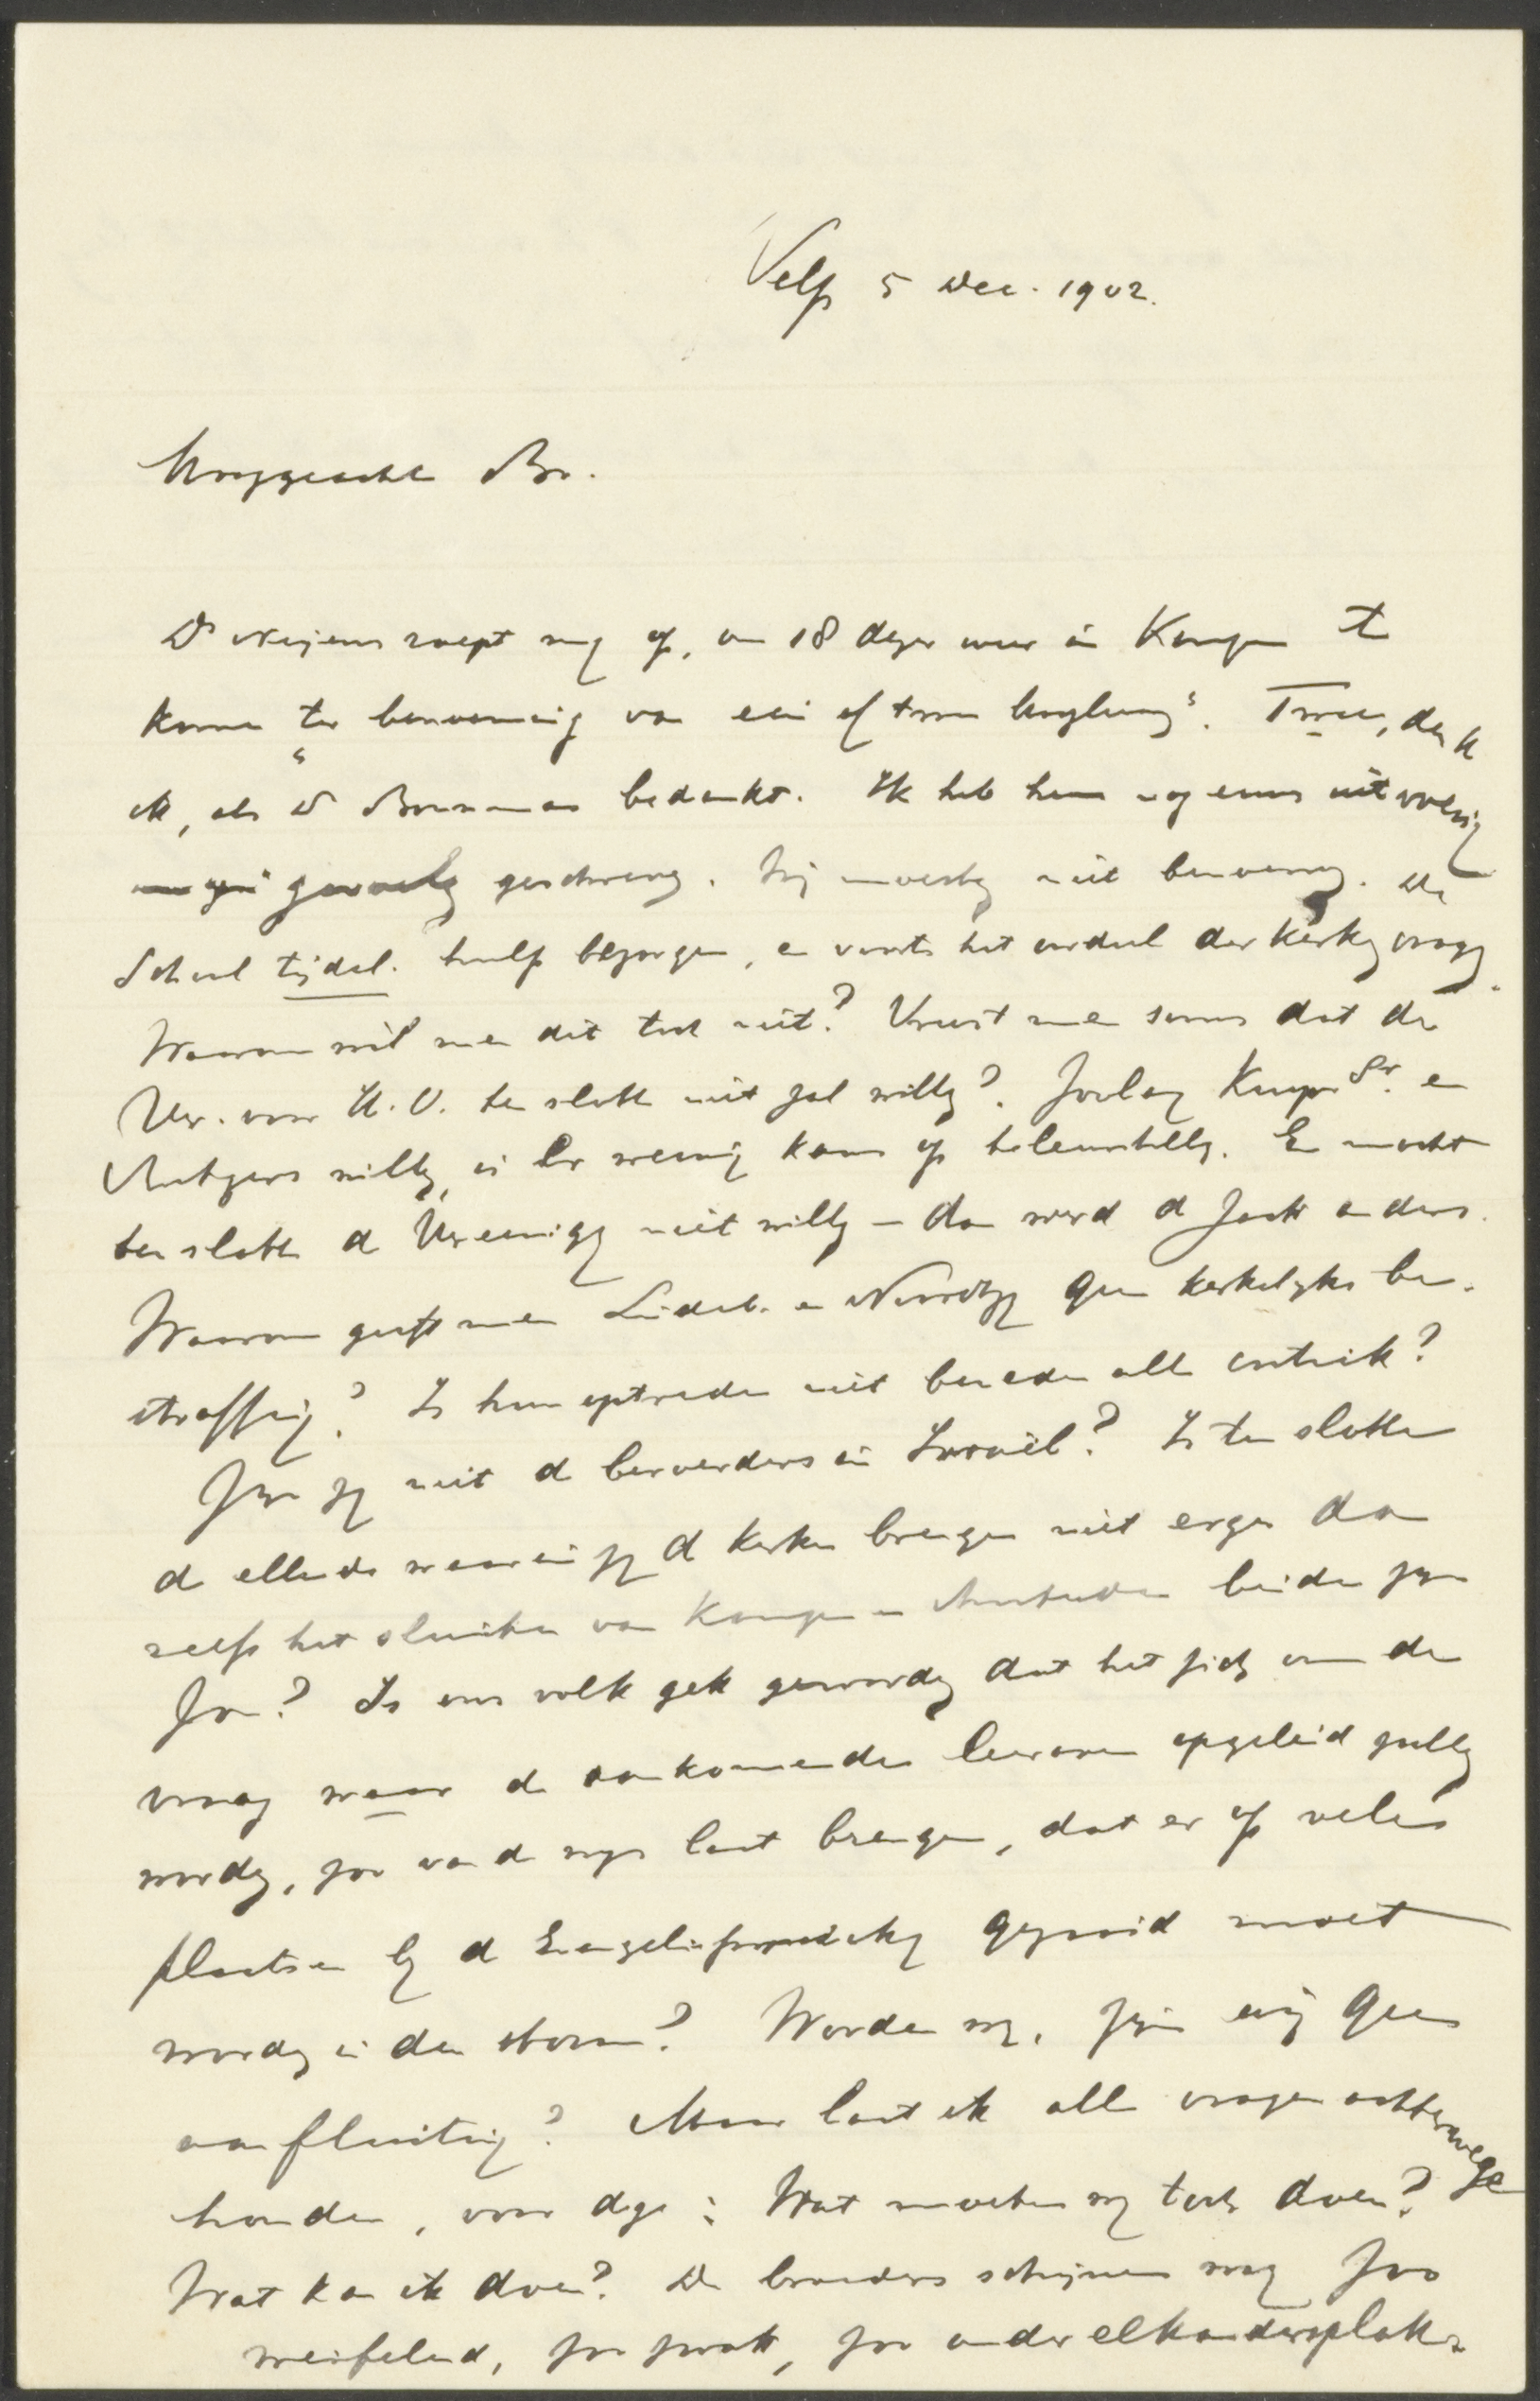 Velp 5 Dec. 1902.
Hooggeachte Br.
Ds Neijens roept mij op, om 18 dezer weer in Kampen te
komen "ter benoeming van een of twee hoogleer.s". Twee, denk
ik, als Ds Bouwman bedankt. Ik heb hem nog eens uitvoerig
geschreven. Zij moesten niet benoemen. De
School tijdel. hulp bezorgen, en voorts het oordeel der kerken vragen.
Waarom wil men dit toch niet? Vreest men soms dat de
Ver. voor H.O. ten slotte niet zal willen? Zoolang Kuyper Sr. en
Rutgers willen, is er weinig kans op teleurstelling. En mocht
ten slotte de Vereeniging niet willen – dan werd de zaak anders.
Waarom geeft men Lindeb. en Noordtzij geen kerkelijke be-
straffing? Is hun optreden niet beneden alle critiek?
Zijn zij niet de beroerders in Israël? Is ten slotte
de ellende waarin zij de kerken brengen niet erger dan
zelfs het sluiten van Kampen en Amsterdam beide zou
zijn? Is ons volk gek geworden dat het zich om de
vraag waar de aankomende leeraren opgeleid zullen
worden, zoo van de wijs laat brengen, dat er op vele
plaatsen bij de Evangelieprediking gepreekt moet
worden in den storm? Worden wij, zijn wij geen
aanfluiting? Maar laat ik alle vragen achterwege
houden, voor deze: Wat moeten wij toch doen?
Wat kan ik doen? De broeders schijnen mij zoo
weifelend, zoo zwak, zoo onder elkander